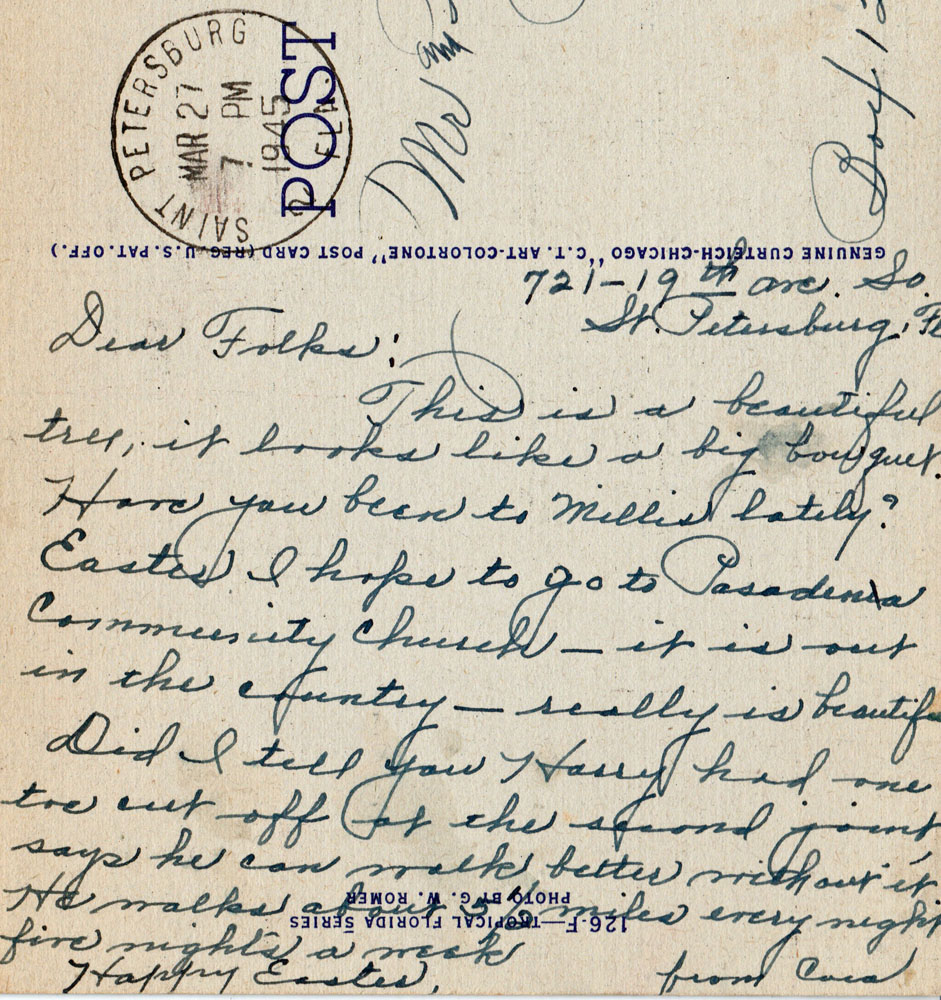 SAINT PETERSBURG
MAR 27
7 PM
1945
FLA.
POST
Mr and
Box 12
GENUINE CURTEICH-CHICAGO "C.T. ART-COLORTONE" POST CARD (REG. U.S. PAT. OFF.)
721-19th ave. So.
St. Petersburg, Fl
Dear Folks:
This is a beautiful
tree, it looks like a big bouquet.
Have you been to Millis lately?
Easter I hope to go to Pasadena
Community Church — it is out
in the country — really is beautifu
Did I tell you Harry had one
toe cut off at the second joint
says he can walk better without it
He walks about miles every night
five nights a week
Happy Easter, from Cora
126-F—TROPICAL FLORIDA SERIES
PHOTO BY G. W. ROMER